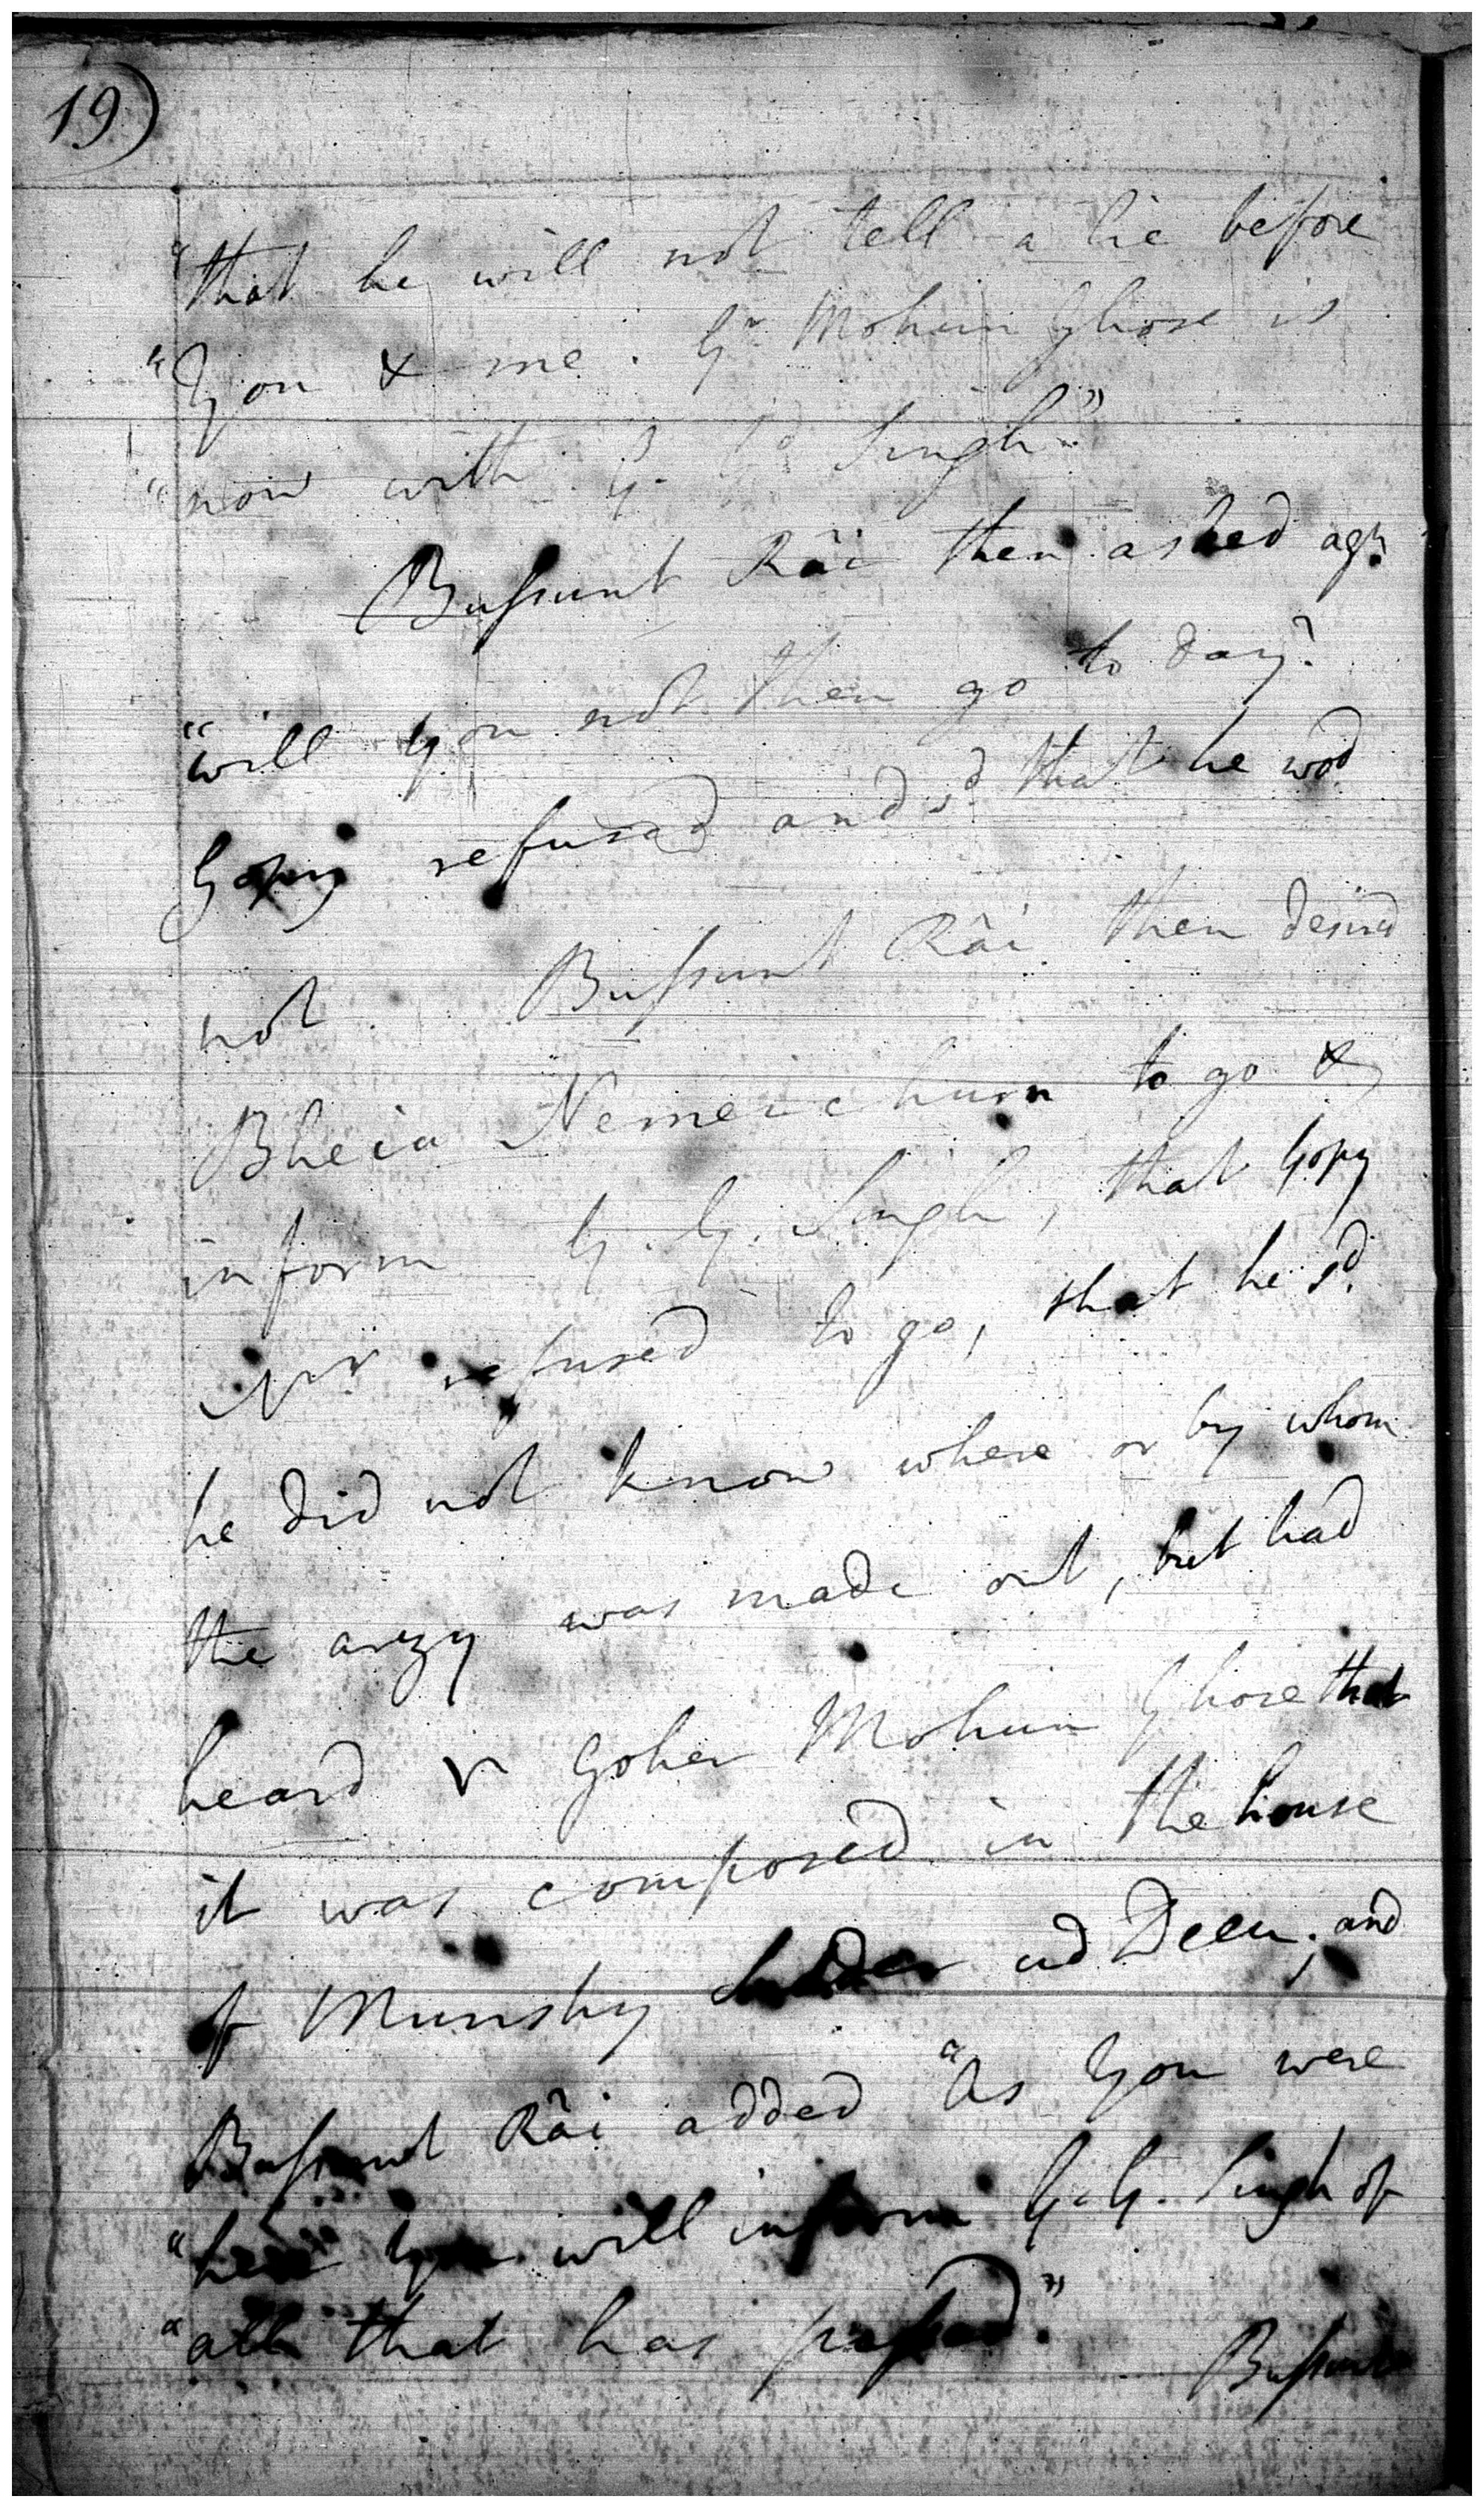 19)
"that he will not tell a lie before
"You & me. Gr Mohun Ghose is
"now with G. Gd Singh"
Bussunt Râi then asked agn.
"will you not then go to day?
Gopy refused and sd that he wod
not. Bussunt Râi then desired
Bheia Nemeichurn to go &
inform G. G. Singh, that Gopy
Nr refused to go, that he sd.
he did not know where or by whom
the arzy was made out, but had
heard Goher Mohun Ghose that
it was composed in the house
of Munshy ud Deen; and
Bussunt Râi added "As You were
"here You will inform G. G. Singh of
"all that has passed."
Bussunt